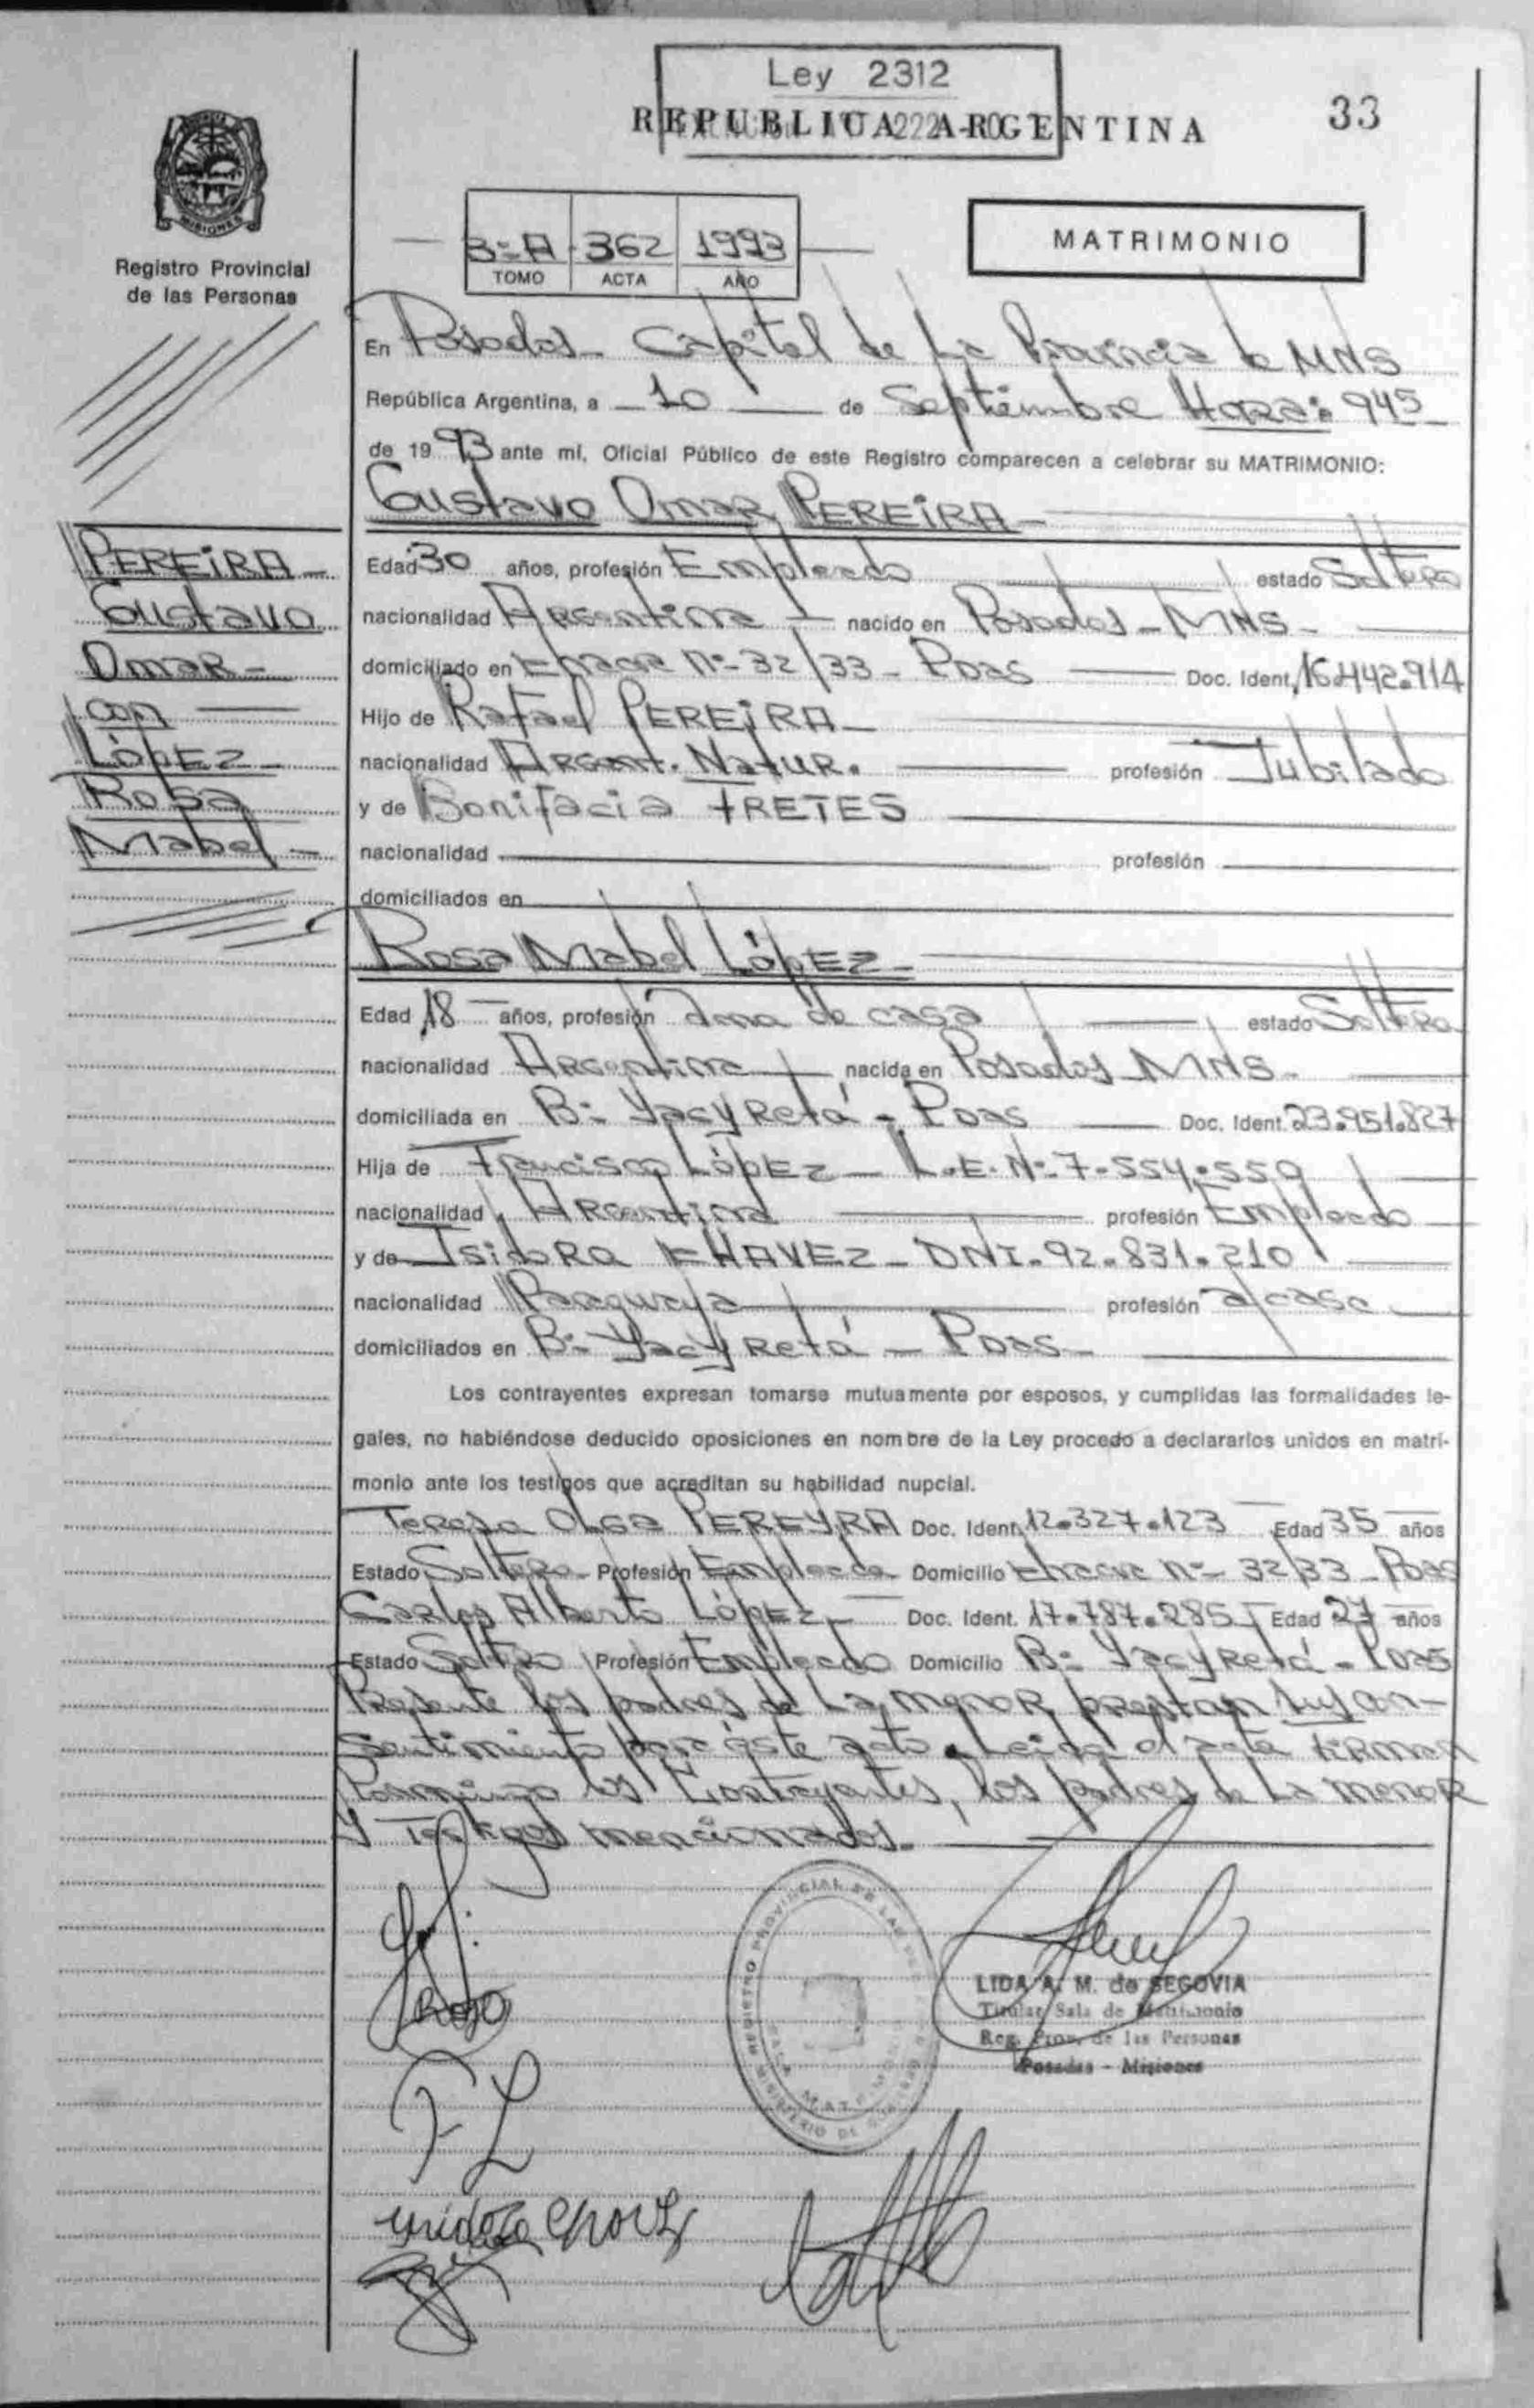 Ley 2312
REPUBLICA ARGENTINA
33
MISIONES
Registro Provincial
de las Personas
3=A 362 1993
TOMO ACTA AÑO
MATRIMONIO
En Posadas - Capital de La Provincia de MNS
República Argentina, a 10 de Septiembre Hora: 945
de 1993 ante mí, Oficial Público de este Registro comparecen a celebrar su MATRIMONIO:
Gustavo Omar PEREIRA
PEREIRA
Gustavo
Omar
con
López
Rosa
Mabel
Edad 30 años, profesión Empleado estado Soltero
nacionalidad Argentina nacido en Posadas - MNS
domiciliado en Chacra Nº 32/33 - Pdas Doc. Ident. 16.442.914
Hijo de Rafael PEREIRA
nacionalidad Argent. Natur. profesión Jubilado
y de Bonifacia FRETES
nacionalidad profesión
domiciliados en
Rosa Mabel López
Edad 18 años, profesión Ama de casa estado Soltera
nacionalidad Argentina nacida en Posadas MNS
domiciliada en Bº Yacyretá - Pdas Doc. Ident. 23.951.827
Hija de Francisco López - L.E. Nº 7.554.559
nacionalidad Argentina profesión Empleado
y de Isidora CHAVEZ - DNI. 92.831.210
nacionalidad Paraguaya profesión a/casa
domiciliados en Bº Yacyretá - Pdas
Los contrayentes expresan tomarse mutuamente por esposos, y cumplidas las formalidades le-
gales, no habiéndose deducido oposiciones en nombre de la Ley procedo a declararlos unidos en matri-
monio ante los testigos que acreditan su habilidad nupcial.
Teresa Olga PEREYRA Doc. Ident. 12.327.123 Edad 35 años
Estado Soltera Profesión Empleada Domicilio Chacra Nº 32/33 - Pdas
Carlos Alberto López Doc. Ident. 17.787.285 Edad 27 años
Estado Soltero Profesión Empleado Domicilio Bº Yacyretá - Pdas
Presente los padres de La menor prestan su con-
sentimiento para éste acto. Leida el acta firman
conmigo los Contrayentes, los padres de La menor
y Testigos mencionados.
REGISTRO PROVINCIAL DE LAS
MINISTERIO DE
LIDA A. M. de SEGOVIA
Titular Sala de Matrimonio
Reg. Prov. de las Personas
Posadas - Misiones
Rosa
F L